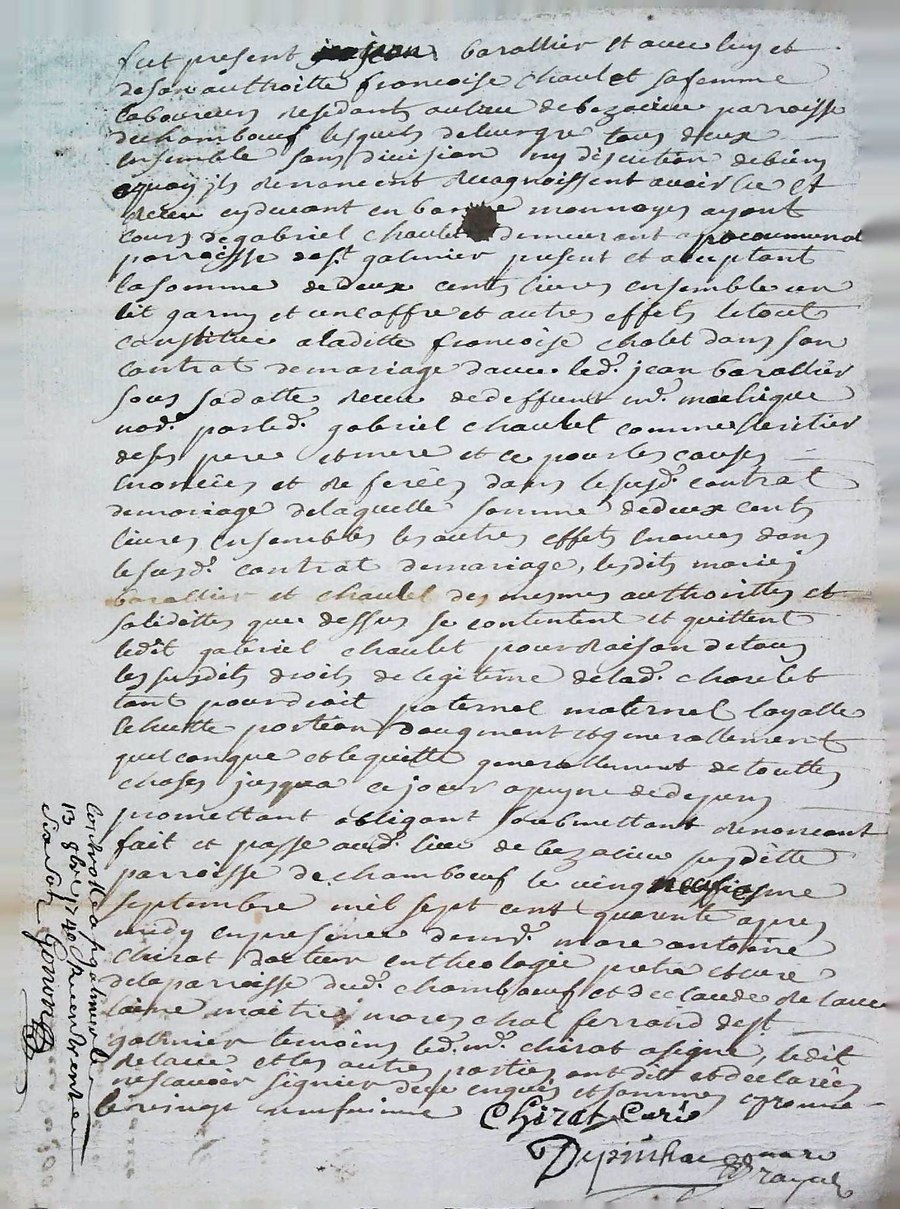 fut present jean barallier et avec luy et
de son authoritte francoise chaulet sa femme
laboureurs residant au lieu de bezacieu parroisse
du chambœuf lesquels de leur gre tous deux
ensemble sans division ny discution de biens
aquoy ils renoncent recognoissent avoir eu et
receu cy devant en bonne monnoyes ayant
cours de gabriel chaulet demeurant a
parroisse de st galmier present et aceptant
la somme de deux cents livres ensemble un
lit garny et un coffre et autres effets le tout
constitue a laditte francoise cholet dans son
contrat de mariage davec led. jean barallier
sous sa datte receu de deffunt me.
nore. par led. gabriel chaulet comme heritier
de ses pere et mere et ce pour les causes
enoncées et referées dans le susd. contrat
de mariage de laquelle somme de deux cents
livres ensembles les autres effets enonces dans
le susd. contrat de mariage, lesdits mariés
barallier et chaulet des mesmes authorittes et
solidittes que dessus se contentent et quittent
ledit gabriel chaulet pour raison de tous
les susdits droits de legitime de lad. choulet
tant pour droit paternel maternel layalle
portion daugment et generallement
quelconque et le quitte generallement de touttes
choses jusqua ce jour a peyne de depens
promettant obligant soubmettant renoncant
fait et passe aud. lieu de bezacieu susditte
parroisse de chambœuf le vingt neufiesme
septembre mil sept cent quarente apres
midy en presence de mr. marc antoine
chirat docteur en theologie pretre et cure
de la parroisse dud. chambœuf et de claude relave
laine maitre mareschal ferrand de st
galmier temoins led. mr. chirat a signé, ledit
relave et les autres parties ont dit et declarées
ne scavoir signer de ce enquis et sommes
le vingt neufvieme
Chirat Curé
Depinhac
Controllé a st galmier le
13 8bre 1740 Receu trente
six sols